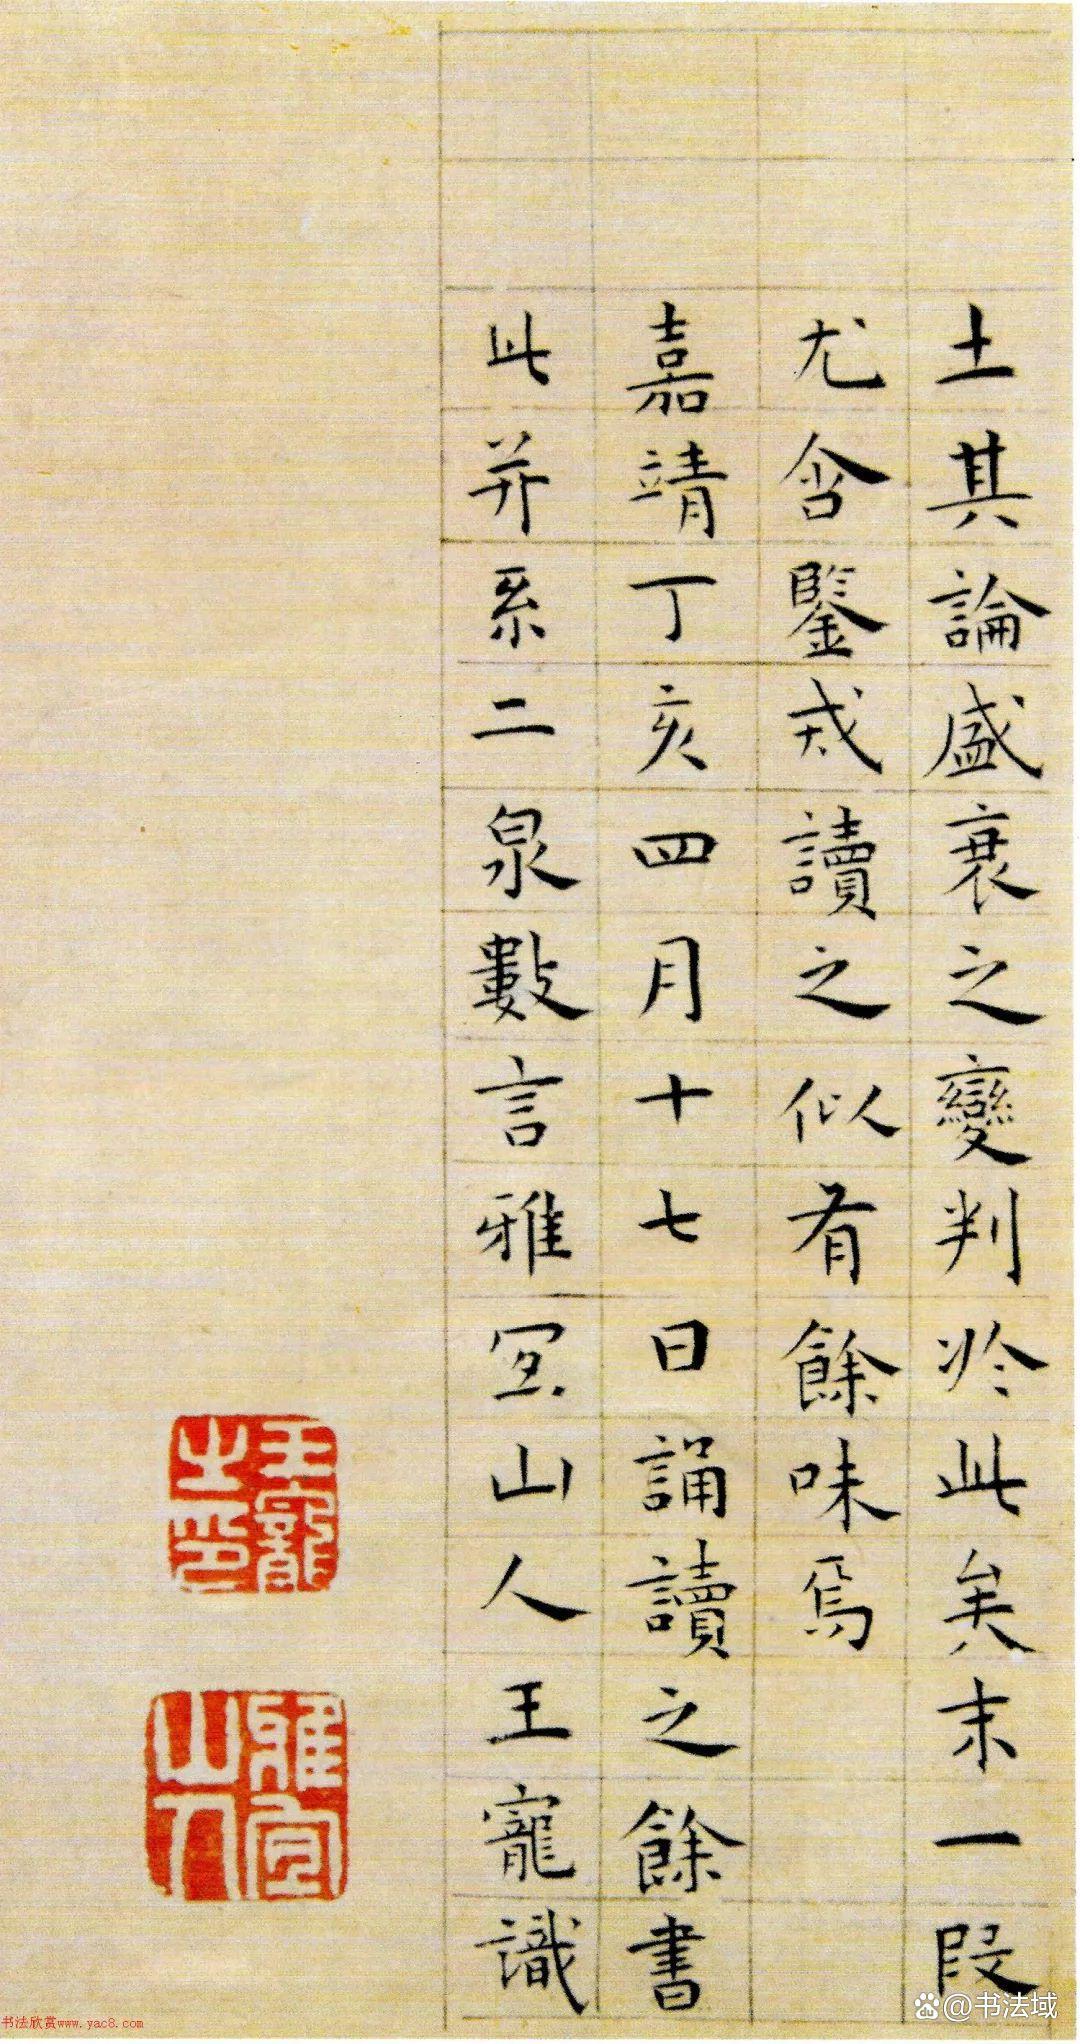 土其論盛衰之變判於此矣末一段
尤含鑒戒讀之似有餘味焉
嘉靖丁亥四月十七日誦讀之餘書
此并系二泉數言雅宜山人王寵識
王寵之印
雅宜山人
书法欣赏www.yac8.com
@书法域